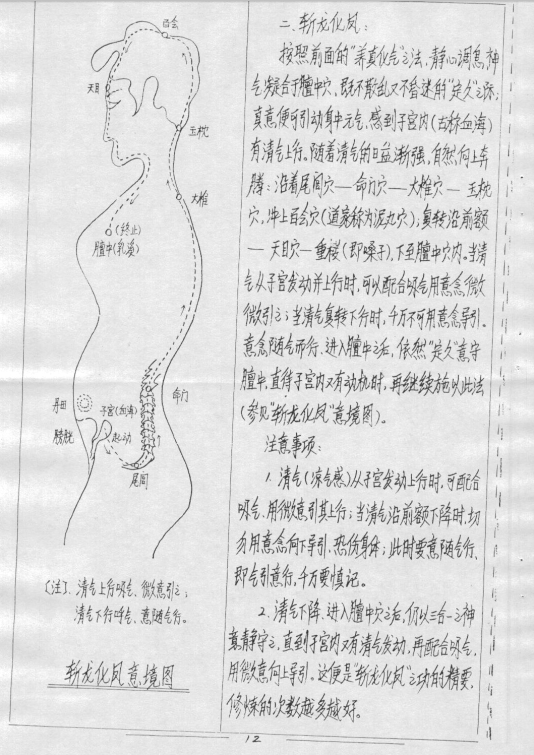 百会
天目
玉枕
大椎
(终止)
膻中(乳溪)
命门
丹田
子宫(血海)
膀胱
起动
尾闾
〔注〕、清气上行吸气、微意引之;
清气下行呼气、意随气行。
斩龙化凤意境图
二、斩龙化凤:
按照前面的“养真化气”之法、静心调息,神
气凝合于膻中穴,既不散乱又不昏迷的“定久”之际,
真意便可引动身中元气,感到子宫内(古称血海)
有清气上行。随着清气的日益渐强,自然向上奔
腾:沿着尾闾穴—命门穴—大椎穴—玉枕
穴,冲上百会穴(道家称为泥丸穴);复转沿前额
—天目穴—重楼(即嗓子),下至膻中穴内。当清
气从子宫发动并上行时,可以配合吸气用意念,微
微引之;当清气复转下行时,千万不可用意念导引。
意念随气而行、进入膻中之后,依然“定久”意守
膻中,直待子宫内又有动机时,再继续施以此法
(参见“斩龙化凤”意境图)。
注意事项:
1、清气(凉气感)从子宫发动上行时,可配合
吸气、用微意引其上行;当清气沿前额下降时,切
勿用意念向下导引、热伤身体;此时要意随气行、
即气引意行,千万要慎记。
2、清气下降、进入膻中穴之后,仍以三合一之神
意静守之,直到子宫内又有清气发动,再配合吸气,
用微意向上导引。这便是“斩龙化凤”之功的精要,
修炼的次数越多越好。
12